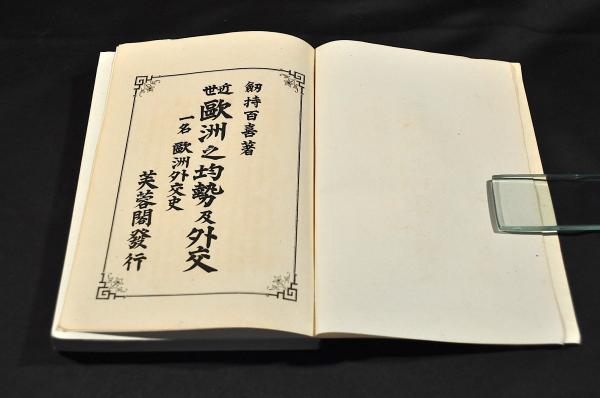 剱持百喜著
近世 歐洲之均勢及外交
一名 歐洲外交史
芙蓉閣發行